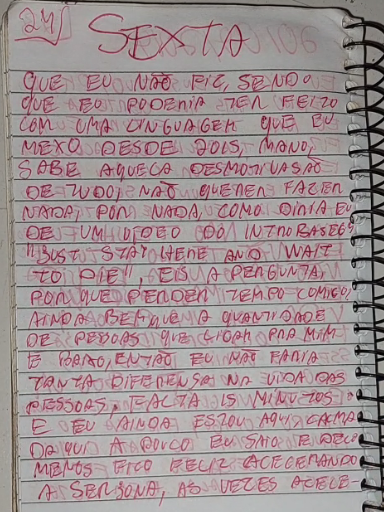 24
SEXTA
QUE EU NÃO FIZ, SENDO
QUE EU PODERIA TER FEITO
COM UMA LINGUAGEM QUE EU
MEXO DESDE 2015, MANO,
SABE AQUELA DESMOTIVASÃO
DE TUDO, NÃO QUERER FAZER
NADA, POR NADA, COMO DIRIA EU
DE UM VIDEO DO INTROBASEGS
"JUST STAY HERE AND WAIT
TO DIE", EIS A PERGUNTA,
POR QUE PERDER TEMPO COMIGO,
AINDA BEM QUE A QUANTIDADE
DE PESSOAS QUE LIGAM PRA MIM
E BAIXO, ENTÃO EU NÃO FARIA
TANTA DIFERENSA NA VIDA DAS
PESSOAS, FALTA 15 MINUTOS
E EU AINDA ESTOU AQUI, CALMA
DAQUI A POUCO EU SAIO E PELO
MENOS FICO FELIZ ACELERANDO
A SENSONA, AS VEZES ACELE-